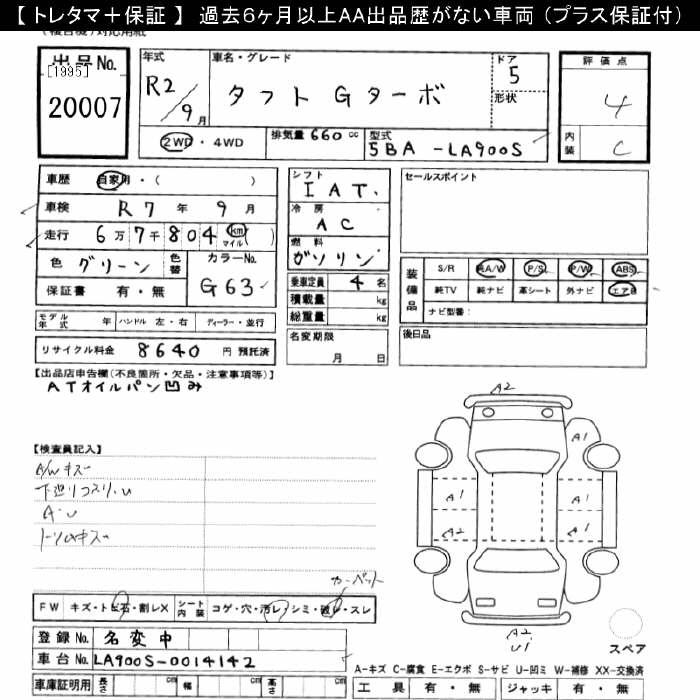 【 トレタマ＋保証 】 過去6ヶ月以上AA出品歴がない車両 (プラス保証付)
出品No.
[1995]
20007
年式 R2/9月
車名・グレード タフト Gターボ
ドア 5
形状
評価点 4
内装 C
2WD ・ 4WD
排気量 660 cc
型式 5BA -LA900S
車歴 自家用・( )
車検 R7 年 9 月
走行 6万7千804 km マイル ( )
色 グリーン 色替
カラーNo. G63
保証書 有・無
シフト IAT.
冷房 AC
燃料 ガソリン
乗車定員 4 名
積載量 kg
総重量 kg
セールスポイント
装備品 S/R 純A/W P/S P/W ABS
純TV 純ナビ 革シート 外ナビ エアB
ナビ型番:
モデル年式 年 ハンドル 左・右 ディーラー・並行
名変期限 月 日
後日品
リサイクル料金 8640 円 預託済
【出品店申告欄(不良箇所・欠品・注意事項等)】
ATオイルパン凹み
A2
A1
【検査員記入】
A/Wキズ
下廻りコスリ.U
A・U
A1 A1
A2 A1
カーペット
FW キズ・トビ石・割レX シート内装 コゲ・穴・汚レ・シミ・破レ・スレ
登録No. 名変中
A2
U1
スペア
車台No. LA900S-0014142
A-キズ C-腐食 E-エクボ S-サビ U-凹ミ W-補修 XX-交換済
車庫証明用 長さ cm 幅 cm 高さ cm
工具 有・無 ジャッキ 有・無